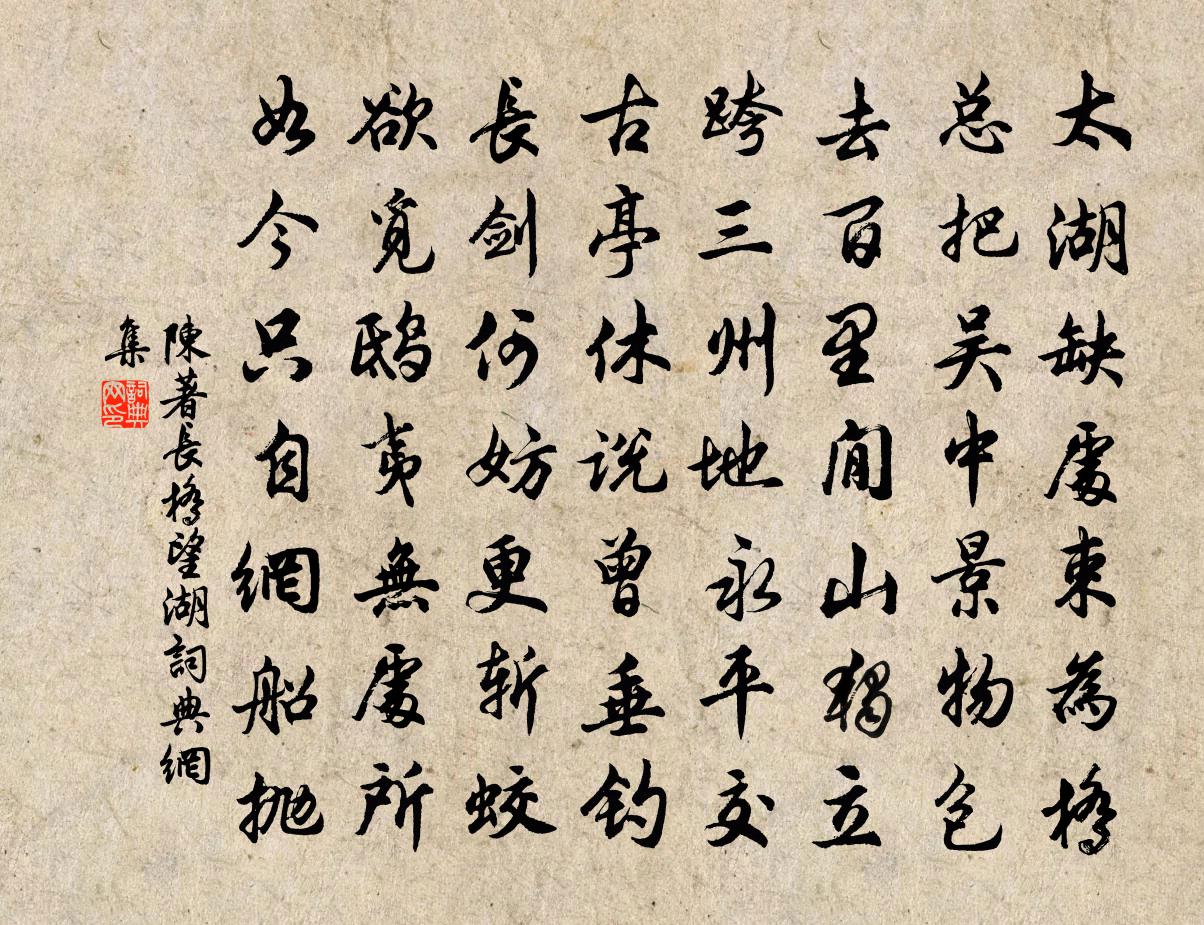 太湖缺處束為橋
总把吴中景物包
去百里間山獨立
跨三州地永平交
古亭休说曾垂钓
長剑何妨更斩蛟
欲覓鴟夷無處所
如今只自網船抛
陳著長橋望湖詞典網
集
詞典
网印